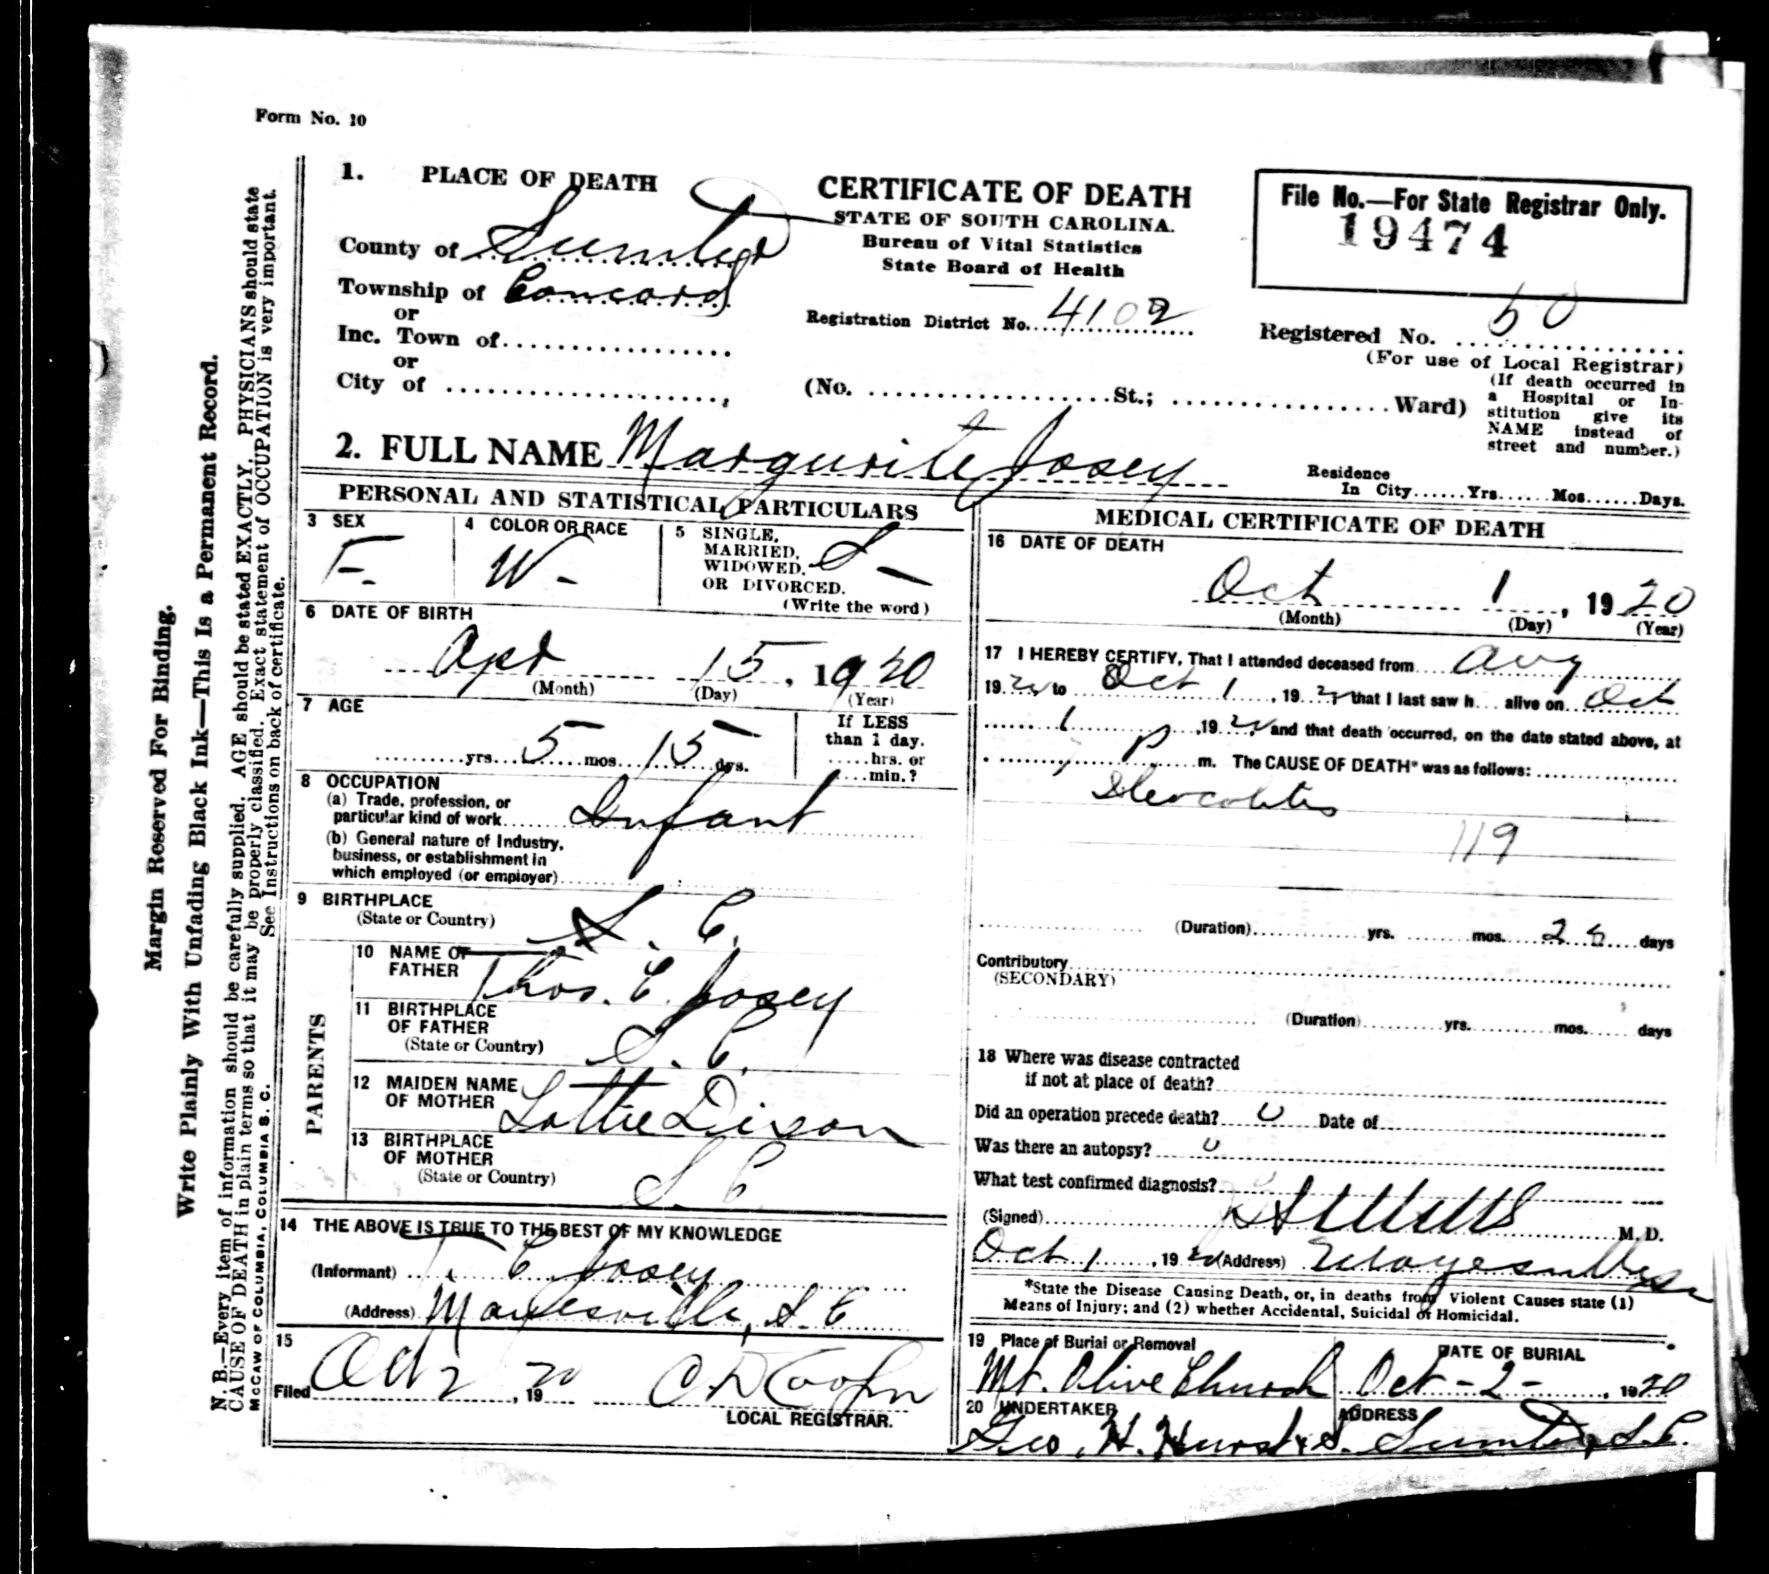 Form No. 10
1. PLACE OF DEATH
County of Sumter
Township of Concord
or
Inc. Town of
or
City of
CERTIFICATE OF DEATH
STATE OF SOUTH CAROLINA.
Bureau of Vital Statistics
State Board of Health
Registration District No. 4102
(No. St.; Ward)
File No.—For State Registrar Only.
19474
Registered No. 60
(For use of Local Registrar)
(If death occurred in
a Hospital or In-
stitution give its
NAME instead of
street and number.)
2. FULL NAME Margurite Josey
Residence
In City Yrs. Mos. Days.
PERSONAL AND STATISTICAL PARTICULARS
3 SEX
F.
4 COLOR OR RACE
W-
5 SINGLE,
MARRIED,
WIDOWED,
OR DIVORCED.
(Write the word)
S-
6 DATE OF BIRTH
Apr 15, 1920
(Month) (Day) (Year)
7 AGE
yrs. 5 mos. 15 dys.
If LESS
than 1 day.
hrs. or
min.?
8 OCCUPATION
(a) Trade, profession, or
particular kind of work Infant
(b) General nature of Industry,
business, or establishment in
which employed (or employer)
9 BIRTHPLACE
(State or Country) S. C.
PARENTS
10 NAME OF
FATHER Thos. E. Josey
11 BIRTHPLACE
OF FATHER
(State or Country) S. C.
12 MAIDEN NAME
OF MOTHER Lottie Dixon
13 BIRTHPLACE
OF MOTHER
(State or Country) S C
14 THE ABOVE IS TRUE TO THE BEST OF MY KNOWLEDGE
(Informant) T. E. Josey
(Address) Mayesville, S. C
15
Filed Oct 2, 1920
LOCAL REGISTRAR.
MEDICAL CERTIFICATE OF DEATH
16 DATE OF DEATH
Oct 1, 1920
(Month) (Day) (Year)
17 I HEREBY CERTIFY, That I attended deceased from Aug
1920 to Oct 1, 1920 that I last saw h alive on Oct
1, 1920 and that death occurred, on the date stated above, at
P m. The CAUSE OF DEATH* was as follows:
Ileocolitis
119
(Duration) yrs. mos. 28 days
Contributory
(SECONDARY)
(Duration) yrs. mos. days
18 Where was disease contracted
if not at place of death?
Did an operation precede death? 0 Date of
Was there an autopsy? 0
What test confirmed diagnosis?
(Signed) M. D.
Oct 1, 1920 (Address) Mayesville
*State the Disease Causing Death, or, in deaths from Violent Causes state (1)
Means of Injury; and (2) whether Accidental, Suicidal or Homicidal.
19 Place of Burial or Removal
Mt. Olive Church
DATE OF BURIAL
Oct-2-, 1920
20 UNDERTAKER
Geo. H. Hurst
ADDRESS
Sumter, S.C.
Margin Reserved For Binding.
Write Plainly With Unfading Black Ink—This Is a Permanent Record.
N. B.—Every item of information should be carefully supplied. AGE should be stated EXACTLY. PHYSICIANS should state
CAUSE OF DEATH in plain terms so that it may be properly classified. Exact statement of OCCUPATION is very important.
See Instructions on back of certificate.
McCAW OF COLUMBIA, COLUMBIA S. C.